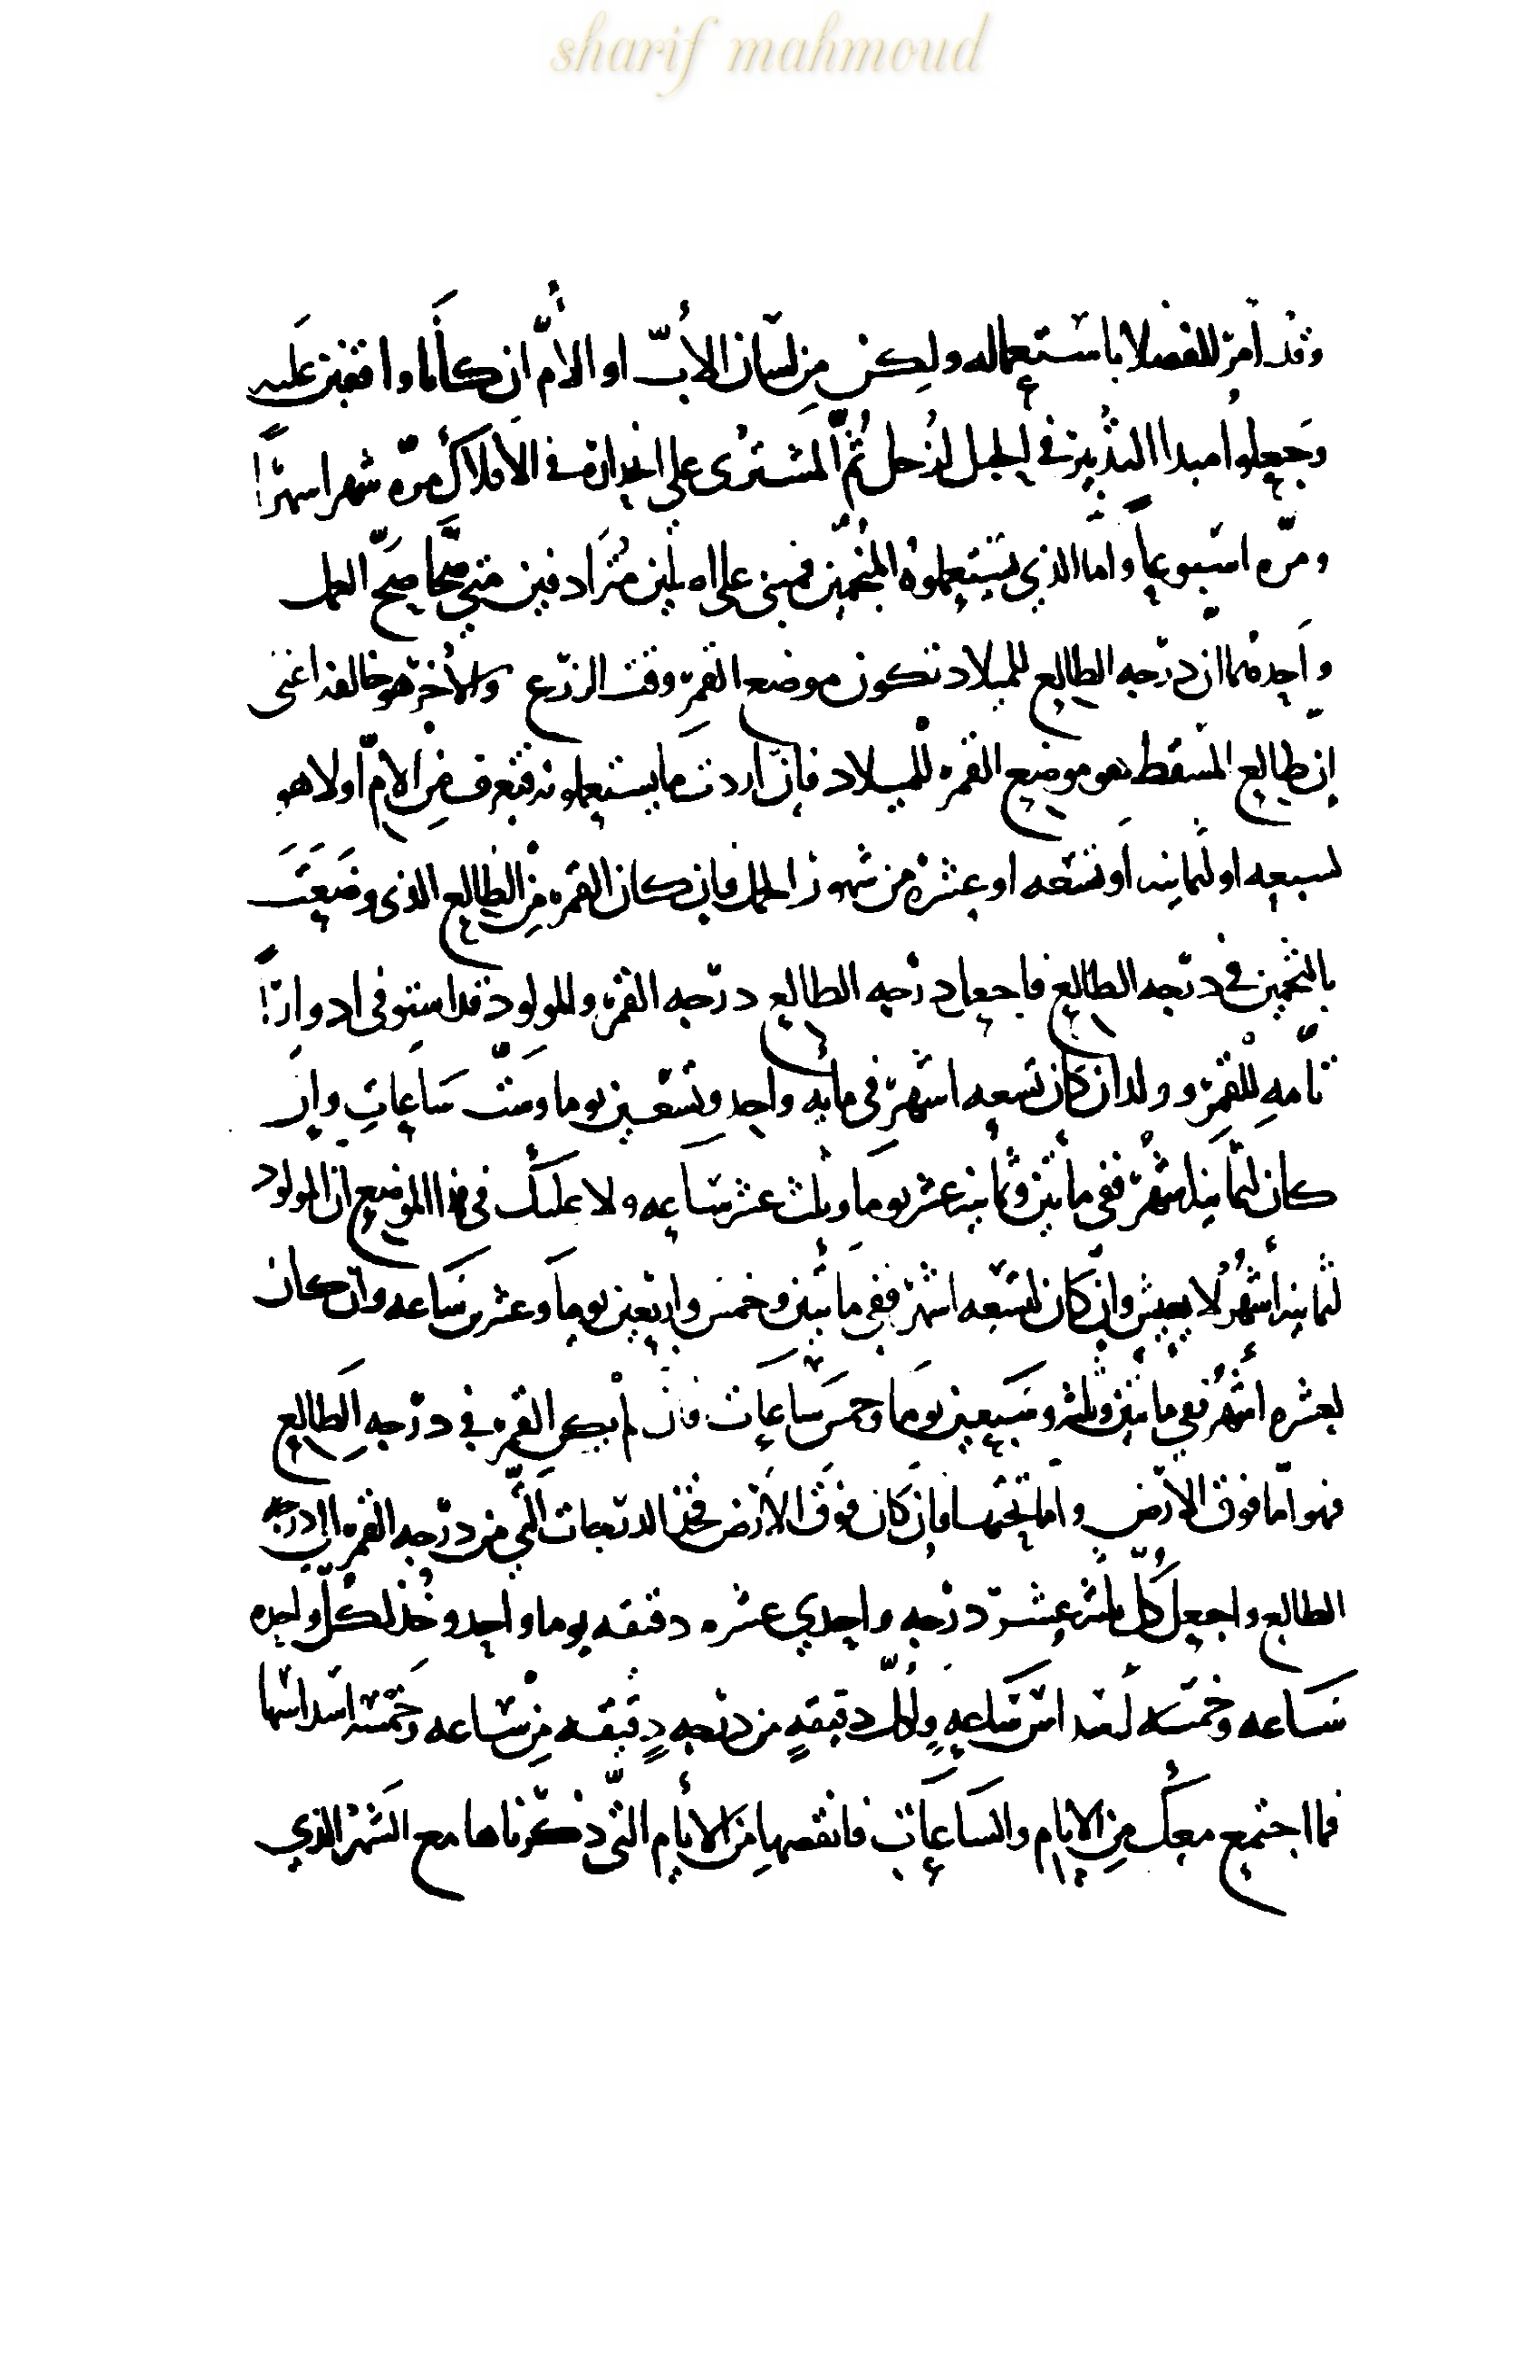 sharif mahmoud
وقد أمر للفضلا باستعماله ولكن من لسان الأب او الأم ان كانا واقفين عليه
وجعلوا مبدا التدبير في الحبل لزحل ثم المشترى على انحداره في الأفلاك مره شهرا شهرًا
ومرّه اسبوعاً واما الذي يستعملوه المنجمين فمبني على اصلين مترادفين متى صحّا صحّ العمل
واحدهما ان درجه الطالع للميلاد تكون موضع القمر وقت الزرع والأخر هو خالفه اعنى
إن طالع المسقط هو موضع القمر للميلاد فإن اردت ما يستعملونه فتعرف من الأم أولا هو
لسبعه او لثمانيه او تسعه او عشره من شهور الحمل فإن كان القمر من الطالع الذى وضعت
بالتخمين في درجه الطالع فاجعل درجه الطالع درجه القمر وللمولود قد استوفى ادوارًا
تامه للقمر وولد ان كان تسعه اشهر فى مايه واحد وتسعين يوما وست ساعات وإن
كان لثمانيه اشهر ففي مائتين وثمانيه عشر يوما وثلث عشر ساعه ولا عليك في هذا الموضع ان المولود
لثمانيه أشهر لا يعيش وإن كان لتسعه اشهر ففي مائتين وخمس واربعين يوما وعشرين ساعه وان كان
لعشره أشهر ففي مائتين وثلثه وسبعين يوما وخمس ساعات فان لم يكن القمر في درجه الطالع
فهو امّا فوق الأرض واما تحتها فإن كان فوق الأرض فخذ الدرجات التي من درجه القمر الى درجه
الطالع واجعل كل ثلثه عشر درجه واحدي عشره دقيقه يوما واحد وخذ لكل واحده
ساعه وخمسه اسداس ساعه ولكل دقيقه من درجه دقيقه من ساعه وخمسه اسداسها
فما اجتمع معك من الايام والساعات فانقصها من الأيام التّى ذكرناها مع الشهر الذي